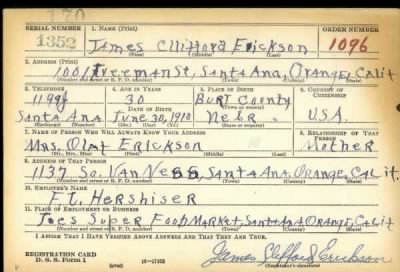 170
SERIAL NUMBER 1. NAME (Print) ORDER NUMBER
1352 James Clifford Erickson 1096
(First) (Middle) (Last)
2. ADDRESS (Print)
1001 Freeman St, Santa Ana, Orange, Calif
(Number and street or R. F. D. number) (Town) (County) (State)
3. TELEPHONE 4. AGE IN YEARS 5. PLACE OF BIRTH 6. COUNTRY OF CITIZENSHIP
30 Burt County
DATE OF BIRTH (Town or county)
Santa Ana June 30, 1910 Nebr. U.S.A.
(Exchange) (Number) (Mo.) (Day) (Yr.) (State or country)
7. NAME OF PERSON WHO WILL ALWAYS KNOW YOUR ADDRESS 8. RELATIONSHIP OF THAT PERSON
Mrs. Olaf Erickson Mother
(Mr., Mrs., Miss) (First) (Middle) (Last)
9. ADDRESS OF THAT PERSON
1137 So. Van Ness, Santa Ana, Orange, Calif.
(Number and street or R. F. D. number) (Town) (County) (State)
10. EMPLOYER'S NAME
F. L. Hershiser
11. PLACE OF EMPLOYMENT OR BUSINESS
Joes Super Food Market, Santa Ana Orange, Calif
(Number and street or R. F. D. number) (Town) (County) (State)
I AFFIRM THAT I HAVE VERIFIED ABOVE ANSWERS AND THAT THEY ARE TRUE.
REGISTRATION CARD
D. S. S. Form 1 (over) 16—17105 James Clifford Erickson
(Registrant's signature)